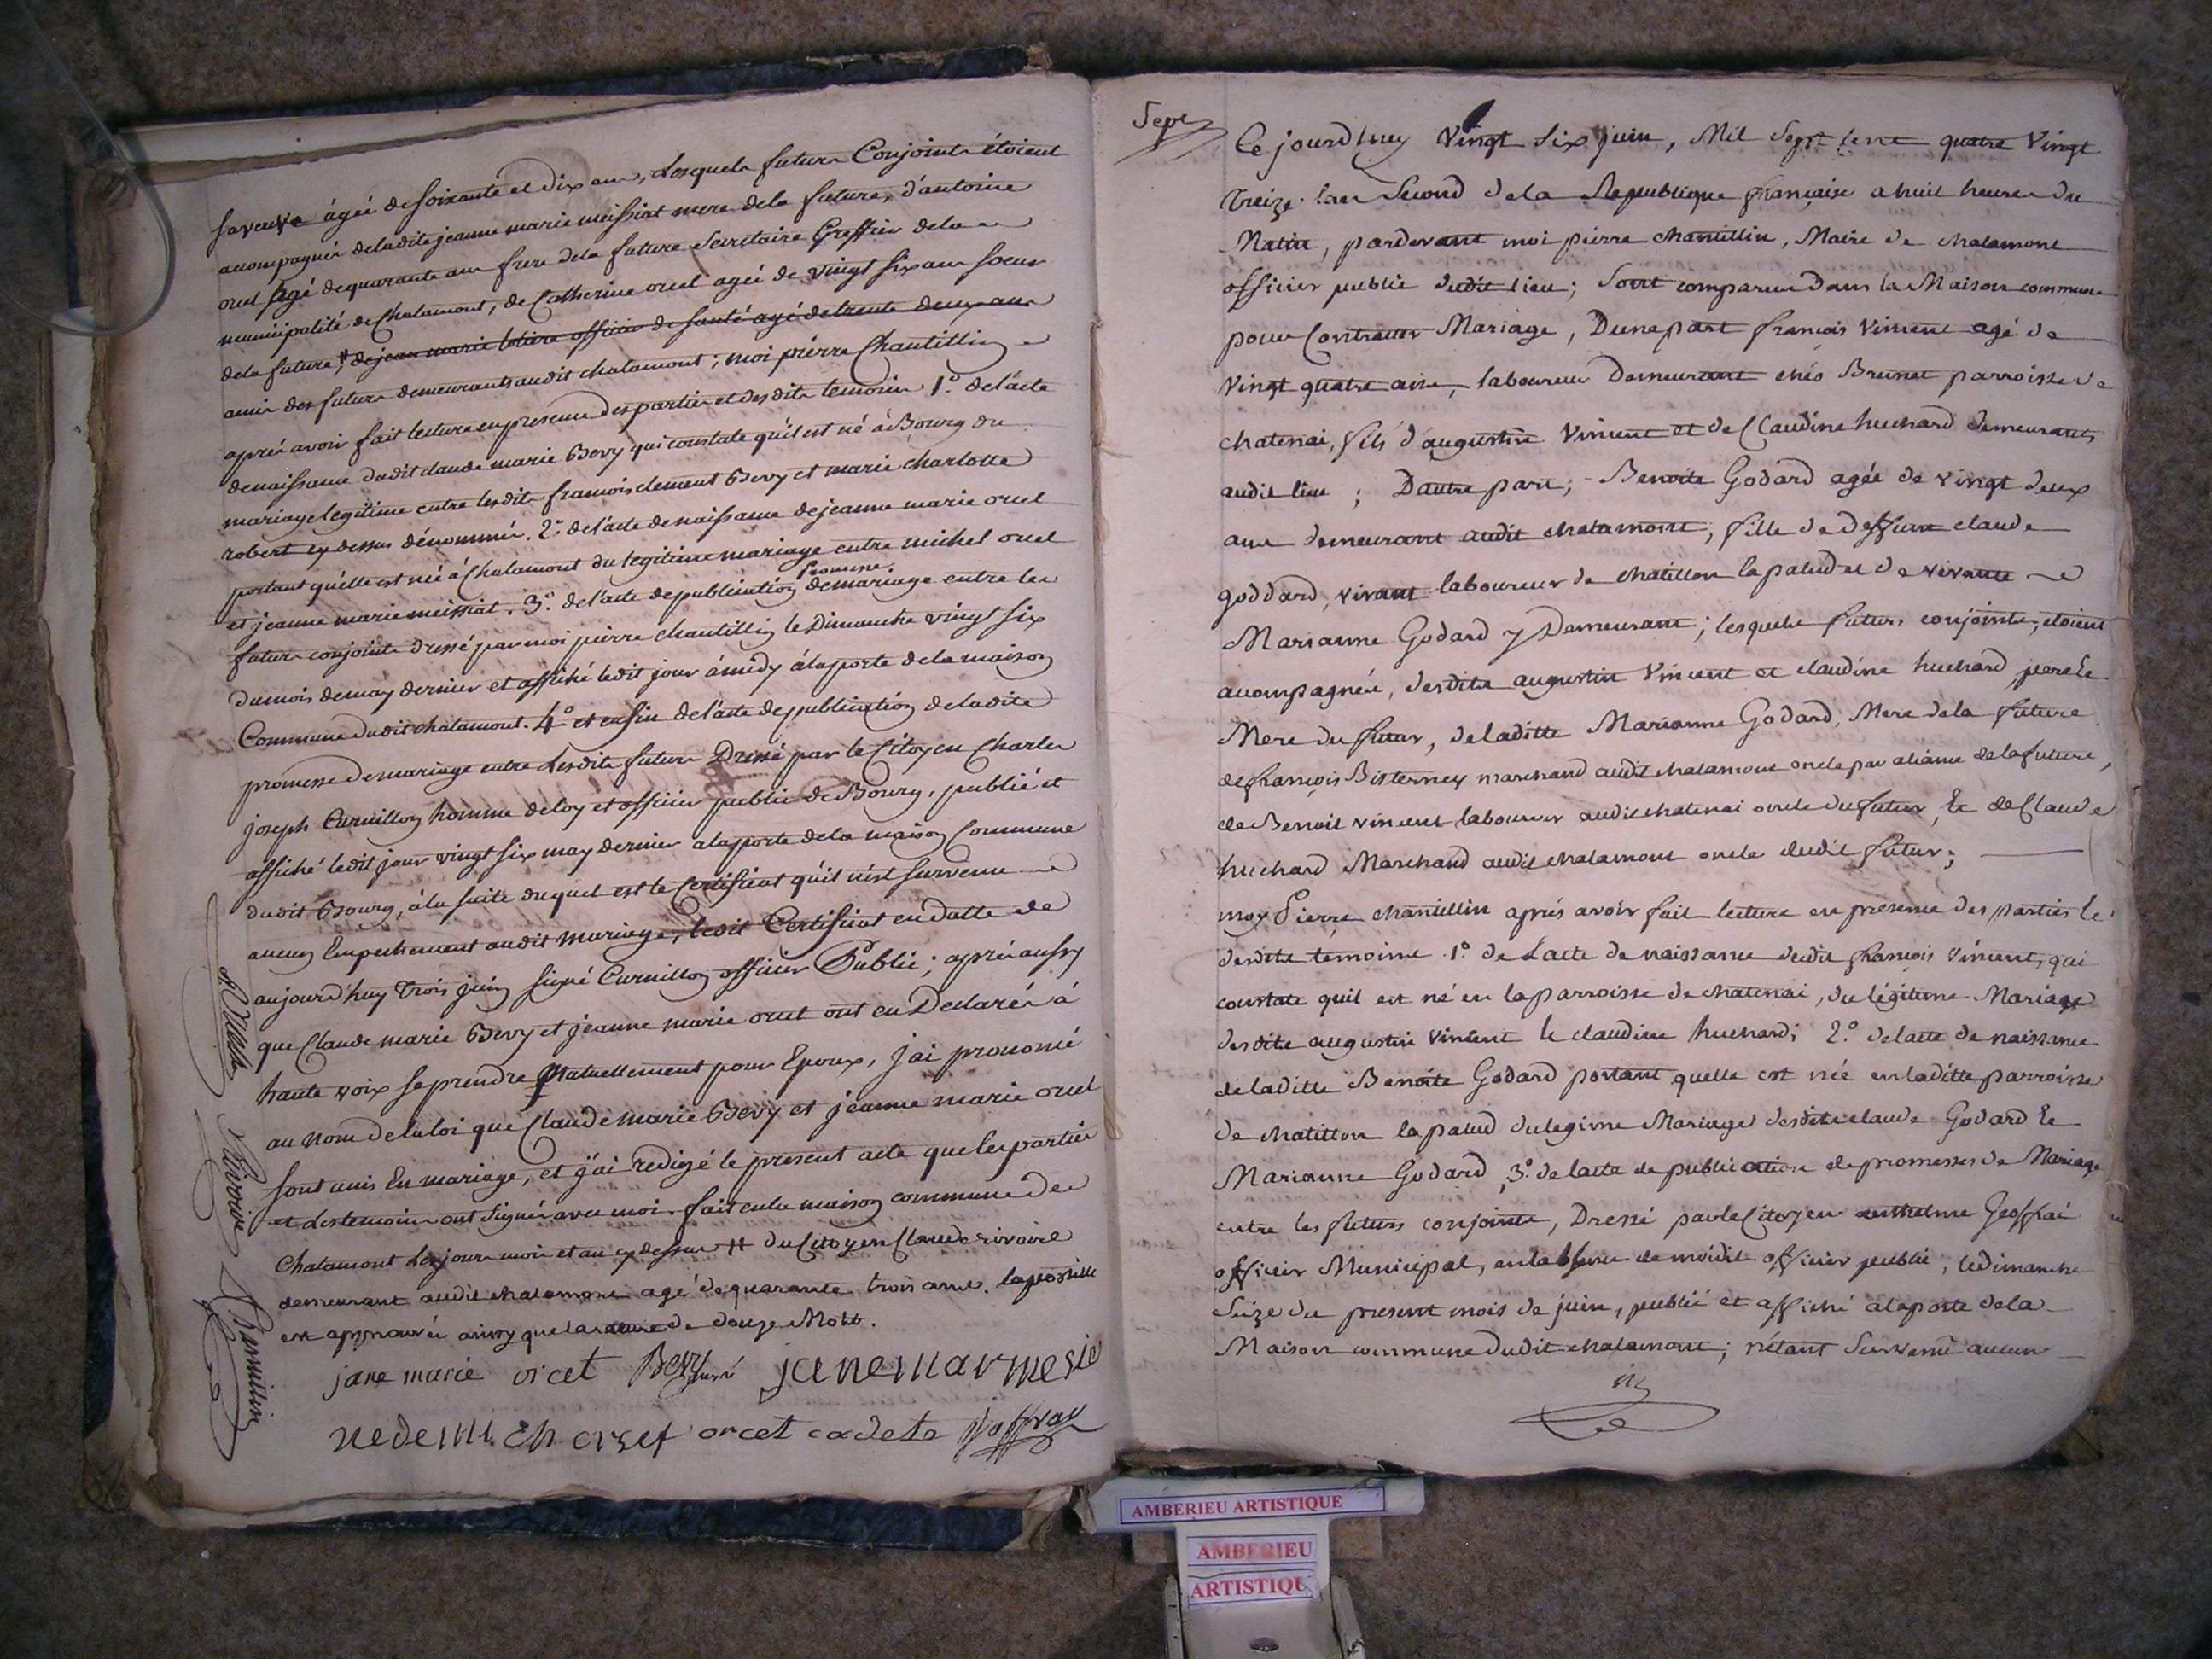 sa veuve âgée de soixante et dix ans, Lesquels futurs Conjoints étoient
accompagnés de ladite jeanne marie meissiat mere de la future, d'antoine
orcel âgé de quarante ans frere de la future Secretaire Greffier de la
municipalité de Chalamont, de Catherine orcel agée de vingt six ans soeur
de la future, # de jean marie officier de santé agé de trente deux ans
amis des futurs demeurants audit chalamont; moi pierre Chantillin
après avoir fait lecture en presence des parties et desdits temoins 1° de l'acte
de naissance dudit claude marie Bevy qui constate qu'il est né à Bourg du
mariage legitime entre lesdits francois clement Bevy et marie charlotte
robert cy dessus dénommés. 2° de l'acte de naissance de jeanne marie orcel
portant qu'elle est née à Chalamont du legitime mariage entre michel orcel
et jeanne marie meissiat. 3° de l'acte de publication promesse de mariage entre les
futurs conjoints dressé par moi pierre chantillin le Dimanche vingt six
du mois de may dernier et affiché ledit jour à midy à la porte de la maison
Commune dudit chalamont. 4° et enfin de l'acte de publication de ladite
promesse de mariage entre Lesdits futurs Dressé par le Citoyen Charles
joseph Curnillon homme de loy et officier public de Bourg, publié et
affiché ledit jour vingt six may dernier a la porte de la maison Commune
dudit Bourg, à la suite duquel est le Certificat qu'il n'est survenu
aucun Empechement audit mariage, ledit Certificat en datte de
aujourd'huy trois juin signé Curnillon officier Public; après aussy
que Claude marie Bevy et jeanne marie orcel ont eu Declarés à
haute voix se prendre Mutuellement pour Epoux, j'ai prononcé
au nom de la loi que Claude marie Bevy et jeanne marie orcel
sont unis En mariage, et j'ai redigé le present acte que les parties
et Les temoins ont signés avec moi. fait en la maison commune de
Chalamont Les jour mois et an cy dessus # du Citoyen Claude rivoire
demeurant audit chalamont agé de quarante trois ans. la postille
est approuvée ainsy que la rature de douze Mots.
jane marie orcet Bevy jane mar mesia
orcet cadete joffray
Rivoire
Chantillin
Sept
Ce jourdhuy Vingt Six juin, Mil Sept cent quatre Vingt
Treize. lan Second de la Republique française a huit heures du
Matin, pardevant moi pierre chantillin, Maire de chalamont
officier public dudit lieu; Sont comparus Dans la Maison commune
pour Contracter Mariage, Dune part françois Vincent agé de
Vingt quatre ans, laboureur Demeurant chés Brunet parroisse de
chatenai, fils d'augustin Vincent et de Claudine huchard demeurants
audit lieu; Dautre part; Benoite Godard agée de vingt deux
ans demeurant audit chalamont, fille de deffunt claude
goddard, vivant laboureur de chatillon la palud et de vivante
Marianne Godard y Demeurant; lesquels futurs conjoints, etoient
accompagnés, desdits augustin Vincent et claudine huchard pere &
Mere du futur, de laditte Marianne Godard, Mere de la future
de françois Bisterney marchand audit chalamont oncle par aliance de la future,
de Benoit vincent laboureur audit chatenai oncle du futur, & de Claude
huchard Marchand audit chalamont oncle dudit futur;
moy Pierre chantillin aprés avoir fait lecture en presence des parties &
desdits temoins. 1° de Lacte de naissance dudit françois Vincent, qui
constate quil est né en la parroisse de chatenai, du légitime Mariage
desdits augustin vincent & claudine huchard; 2° de lacte de naissance
de laditte Benoite Godard portant quelle est née en laditte parroisse
de chatillon la palud du legime Mariage desdits claude Godard &
Marianne Godard, 3° de lacte de publication de promesses de Mariage
entre les futurs conjoints, Dressé par le Citoyen anthelme Geoffrai
officier Municipal, en labsence de moidit officier public, le dimanche
Seize du present mois de juin, publié et affiché a la porte de la
Maison commune dudit chalamont; n'étant Survenu aucun
AMBERIEU ARTISTIQUE
AMBERIEU
ARTISTIQU